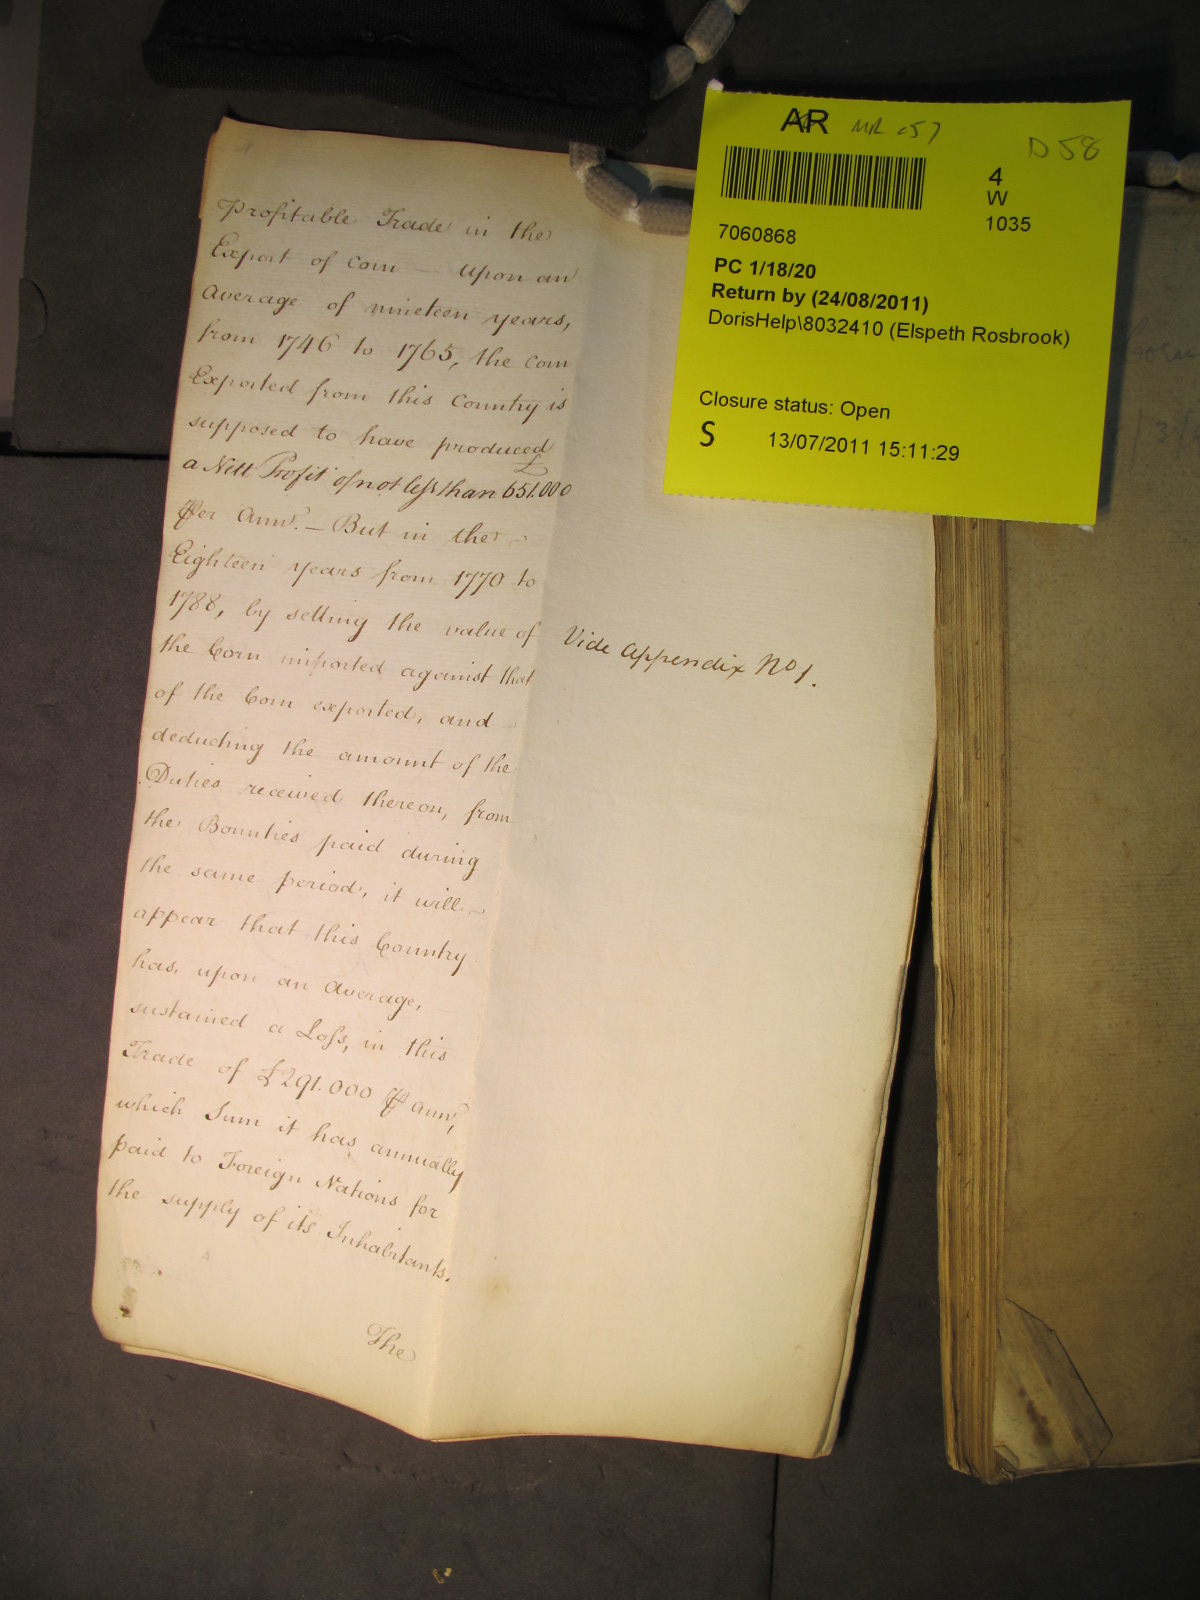 Profitable Trade in the
Export of Corn — Upon an
Average of nineteen years,
from 1746 to 1765, the Corn
Exported from this Country is
supposed to have produced
a Nett Profit of not less than £651.000
⅌er Annm. — But in the
Eighteen years from 1770 to
1788, by setting the value of
the Corn imported against that
of the Corn exported, and
deducting the amount of the
Duties received thereon, from
the Bounties paid during
the same period, it will
appear that this Country
has, upon an Average,
sustained a Loss, in this
Trade of £291.000 ⅌ Annm,
which Sum it has annually
paid to Foreign Nations for
the supply of its Inhabitants.
The
Vide Appendix No 1.
AR MR 057
D 58
4
W
1035
7060868
PC 1/18/20
Return by (24/08/2011)
DorisHelp\8032410 (Elspeth Rosbrook)
Closure status: Open
S 13/07/2011 15:11:29